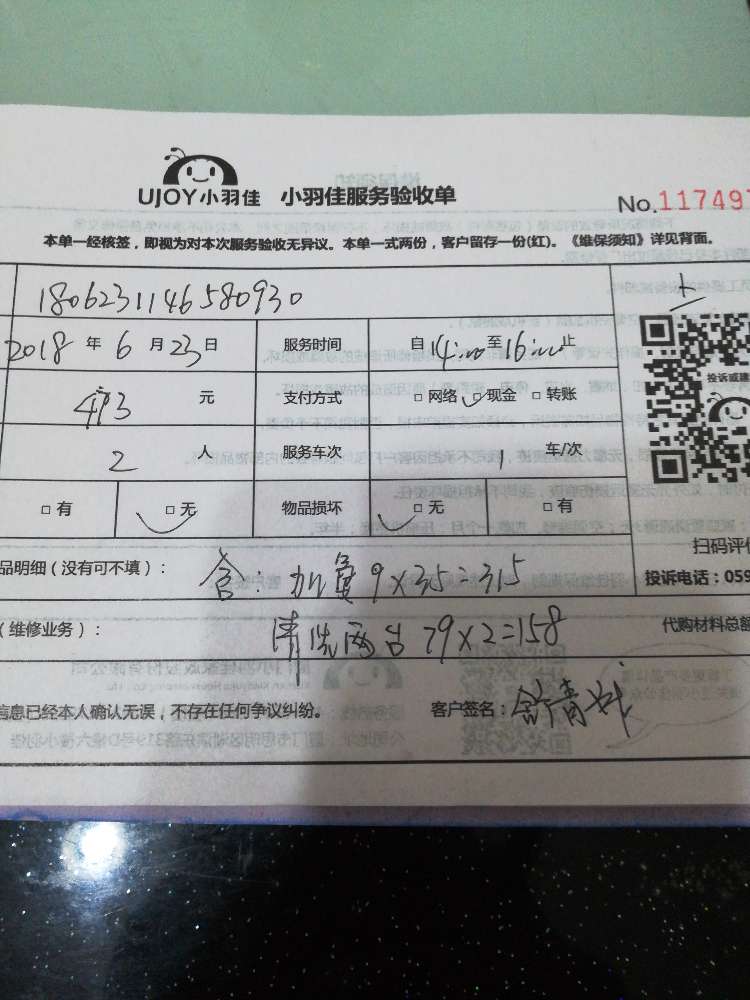 UJOY小羽佳 小羽佳服务验收单
No.117497
本单一经核签，即视为对本次服务验收无异议。本单一式两份，客户留存一份(红)。《维保须知》详见背面。
1806231146580930
2018 年 6 月 23 日 服务时间 自 14:00 至 16:00 止
473 元 支付方式 □ 网络 □ 现金 □ 转账
投诉或建
2 人 服务车次 1 车/次
□ 有 □ 无 物品损坏 □ 无 □ 有
扫码评价
品明细（没有可不填）： 含：加氟 9×35=315
投诉电话：059
（维修业务）： 清洗两台 79×2=158 代购材料总额
信息已经本人确认无误，不存在任何争议纠纷。 客户签名：